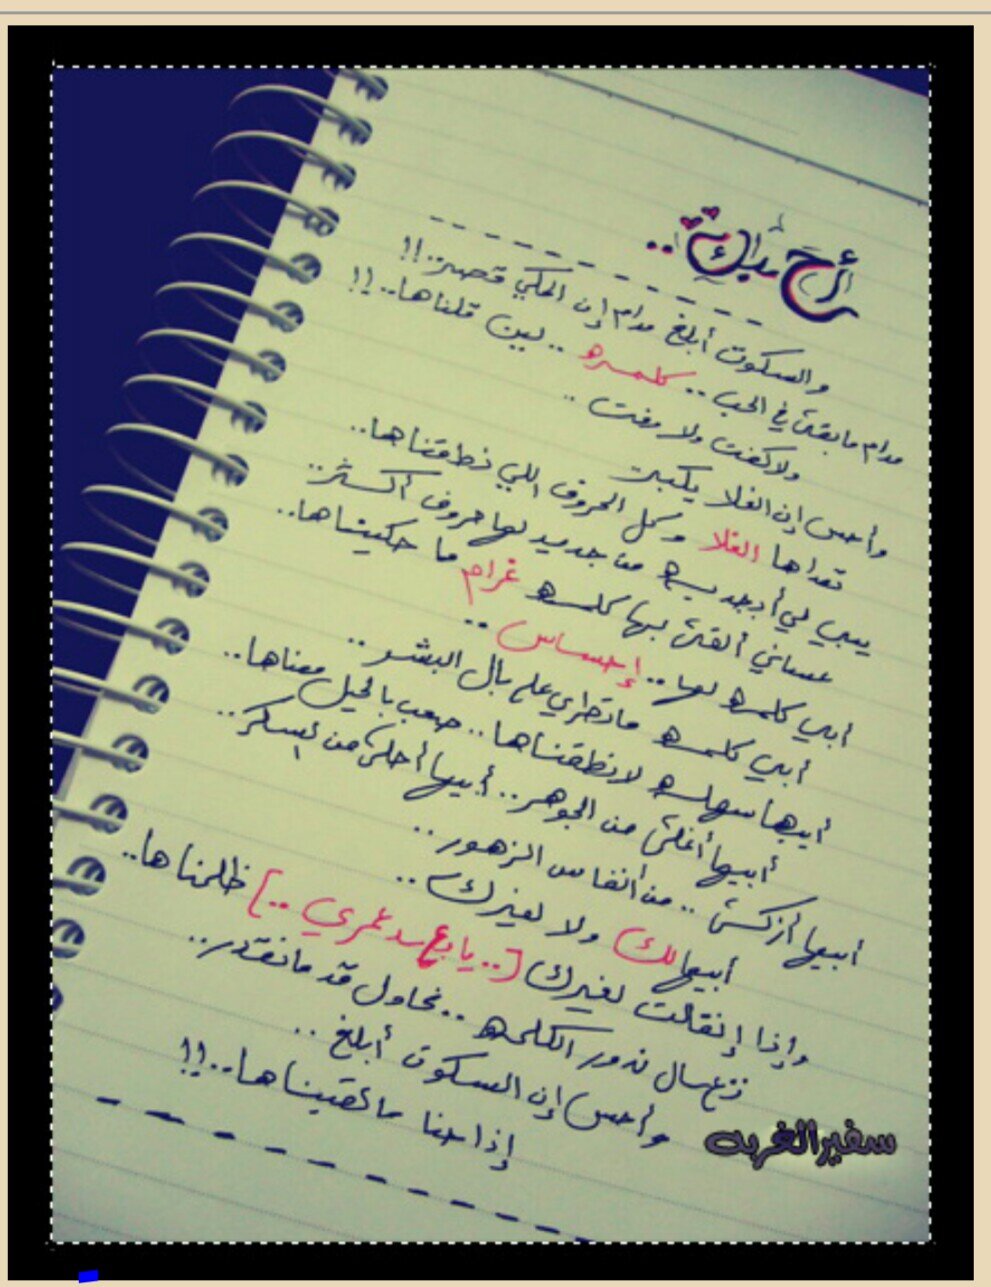 والسكوت أبلغ مدام إن الحكي قصير..!!
مدام ما بقى في الحب .. كلمـه .. لين قلناها..!!
ولا كفت ولا وفت ..
وأحس إن الغلا يكبر
تعداها الغلا وكل الحروف اللي نطقناها..
يبي لي أبجديـه من جديد لها حروف أكـثر..
عساني ألقى بها كلمـه غرام ما حكيناها..
أبي كلمـه لها .. إحساس ..
أبي كلمـه ما تطري على بال البشـر ..
أبيها سهلـه لا نطقناها .. صعب بالحيل معناها..
أبيها أغلى من الجوهر .. أبيها أحلى من السكر..
أبيها أزكى .. من أنفاس الزهور ..
أبيها لك ولا لغيرك ..
وإذا إنقالت لغيرك [ ..يا بعـد عمري .. ] ظلمناها..
نزعـال ندور الكلمـه .. نحاول قد ما نقدر..
وأحس إن السكوت أبلغ ..
إذا حنا ما لقيناها..!!
سفير الغربه